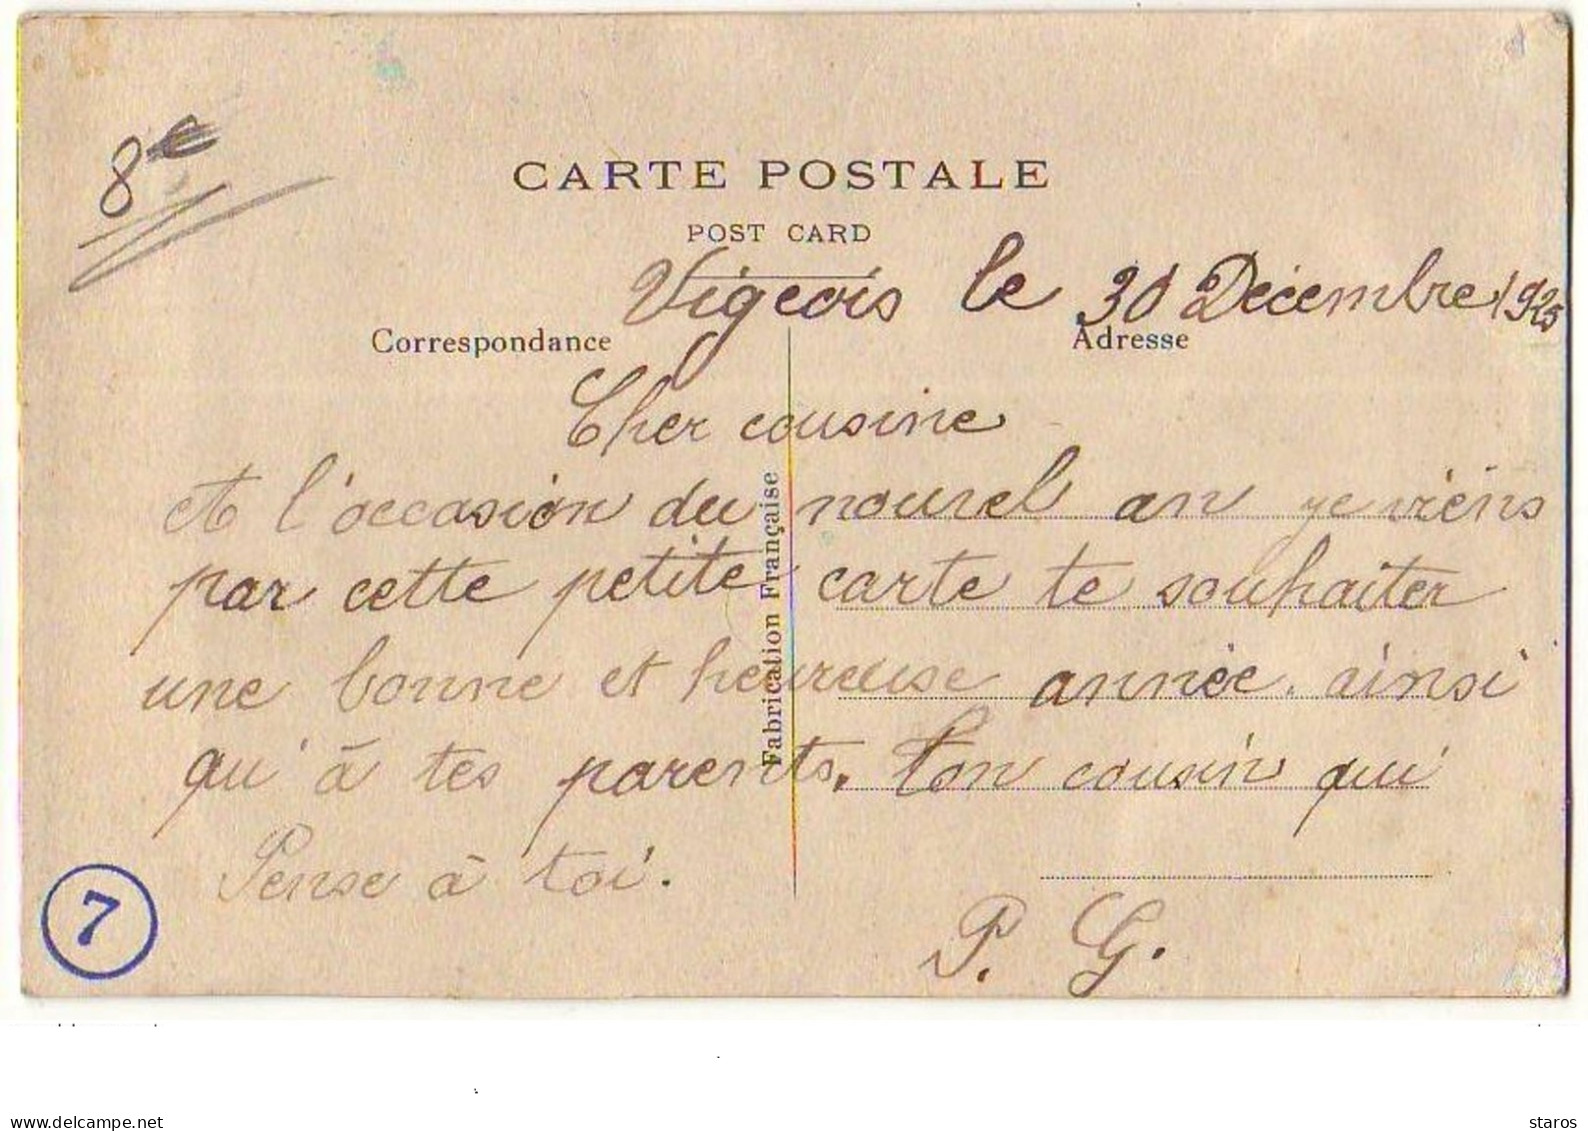 8e
CARTE POSTALE
POST CARD
Vigeois le 30 Décembre 1925
Correspondance
Adresse
Cher cousine
A l'occasion du nouvel an je viens
par cette petite carte te souhaiter
une bonne et heureuse année. ainsi
qu'à tes parents. Ton cousin qui
Pense à toi.
P. G.
Fabrication Française
7
www.delcampe.net
staros